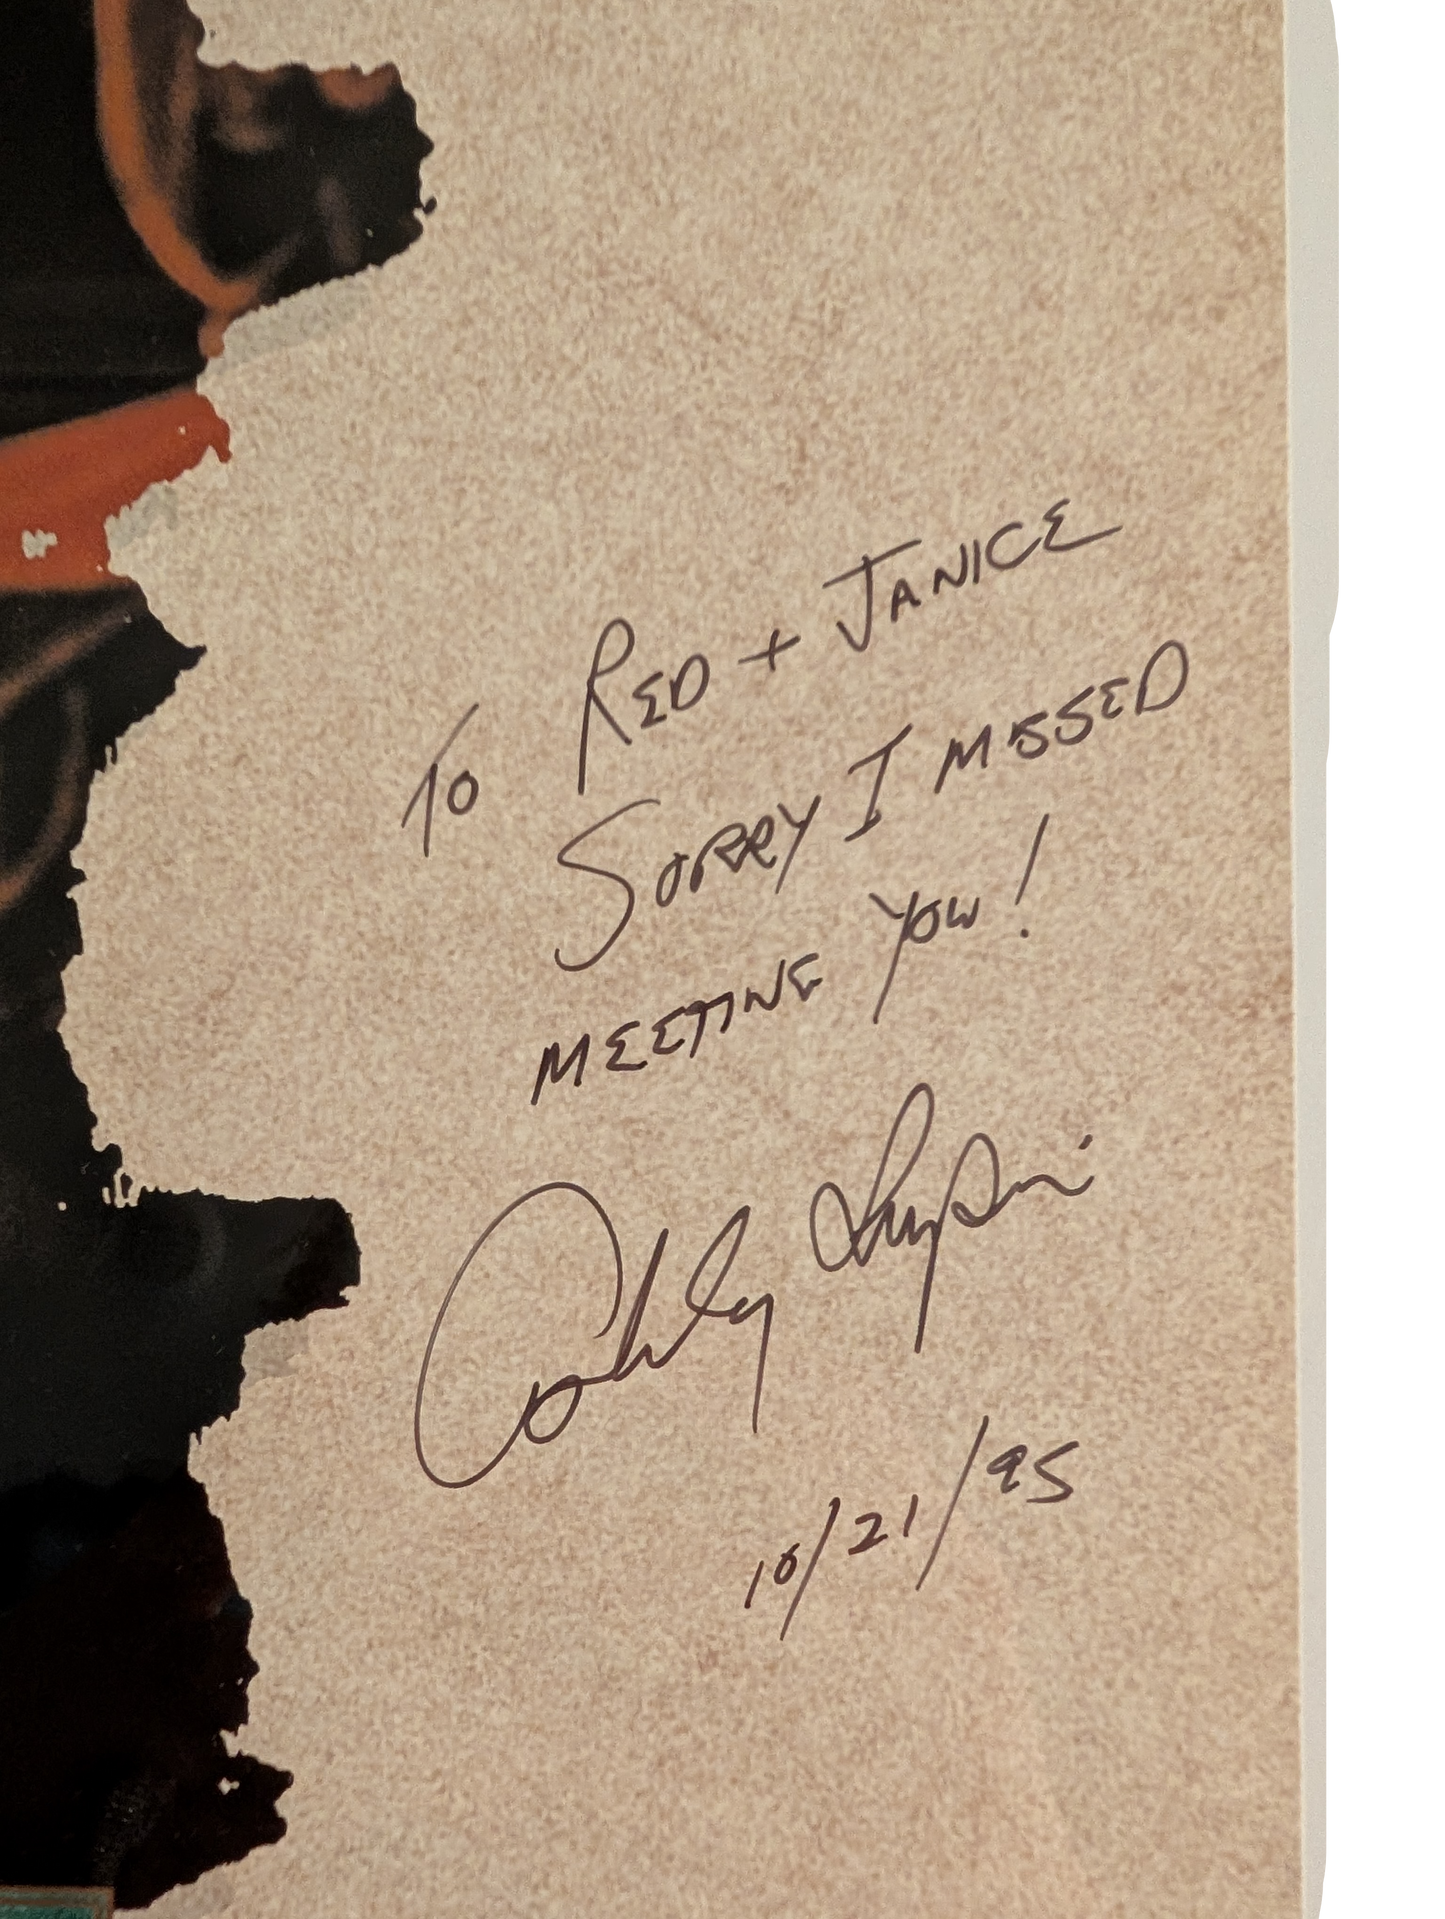 To RED + JANICE
SORRY I MISSED
MEETING YOU!
10/21/95